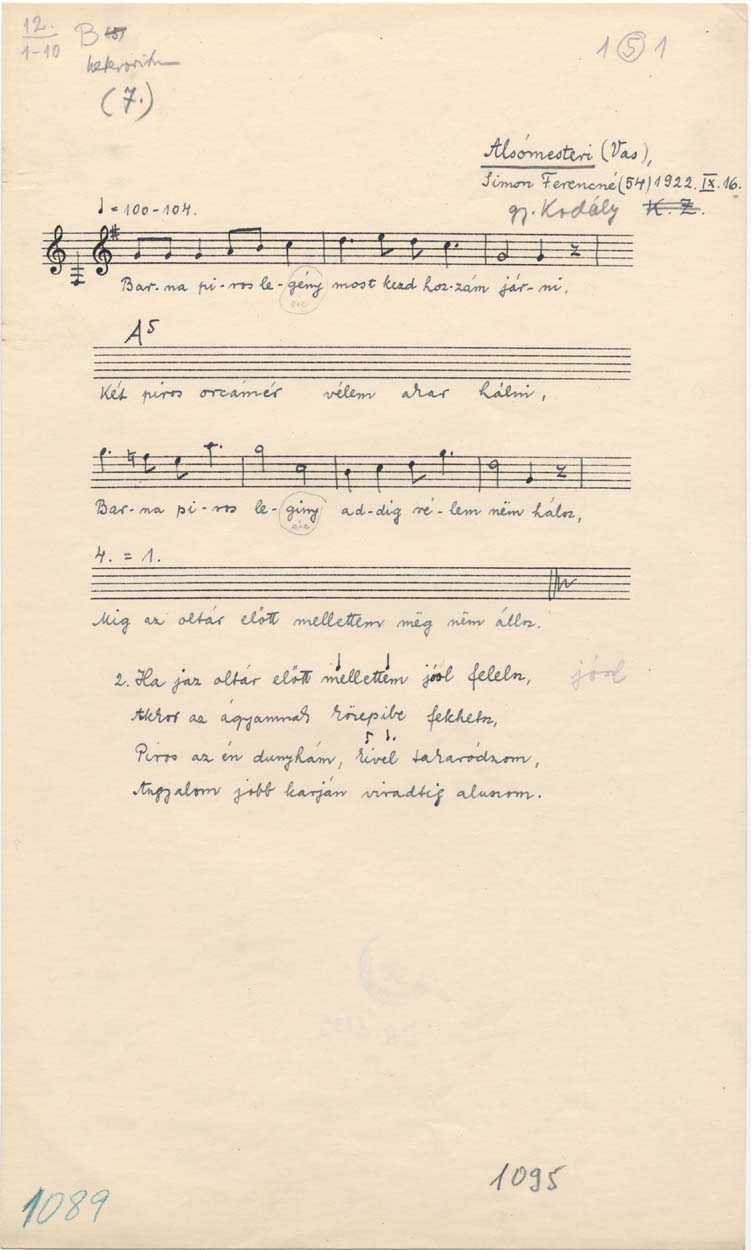 12.
1-10
B
heterorithm
(7.)
1 5 1
Alsómesteri (Vas),
Simon Ferencné (54) 1922. IX. 16.
gy. Kodály K. Z.
♩ = 100-104.
Bar-na pi-ros le-gény most kezd hoz-zám jár-ni,
sic
A5
Két piros orcámér vélem akar hálni,
Bar-na pi-ros le-giny ad-dig vé-lem nëm hálsz,
sic
4. = 1.
Mig az oltár előtt mellettem mëg nëm állsz.
2. Ha jaz oltár előtt mellettem jóol felelsz, jóol
Akkor az ágyamnak közepibe fekhetsz,
Piros az én dunyhám, kível takaródzom,
Angyalom jobb karján viradtig aluszom.
1095
1089